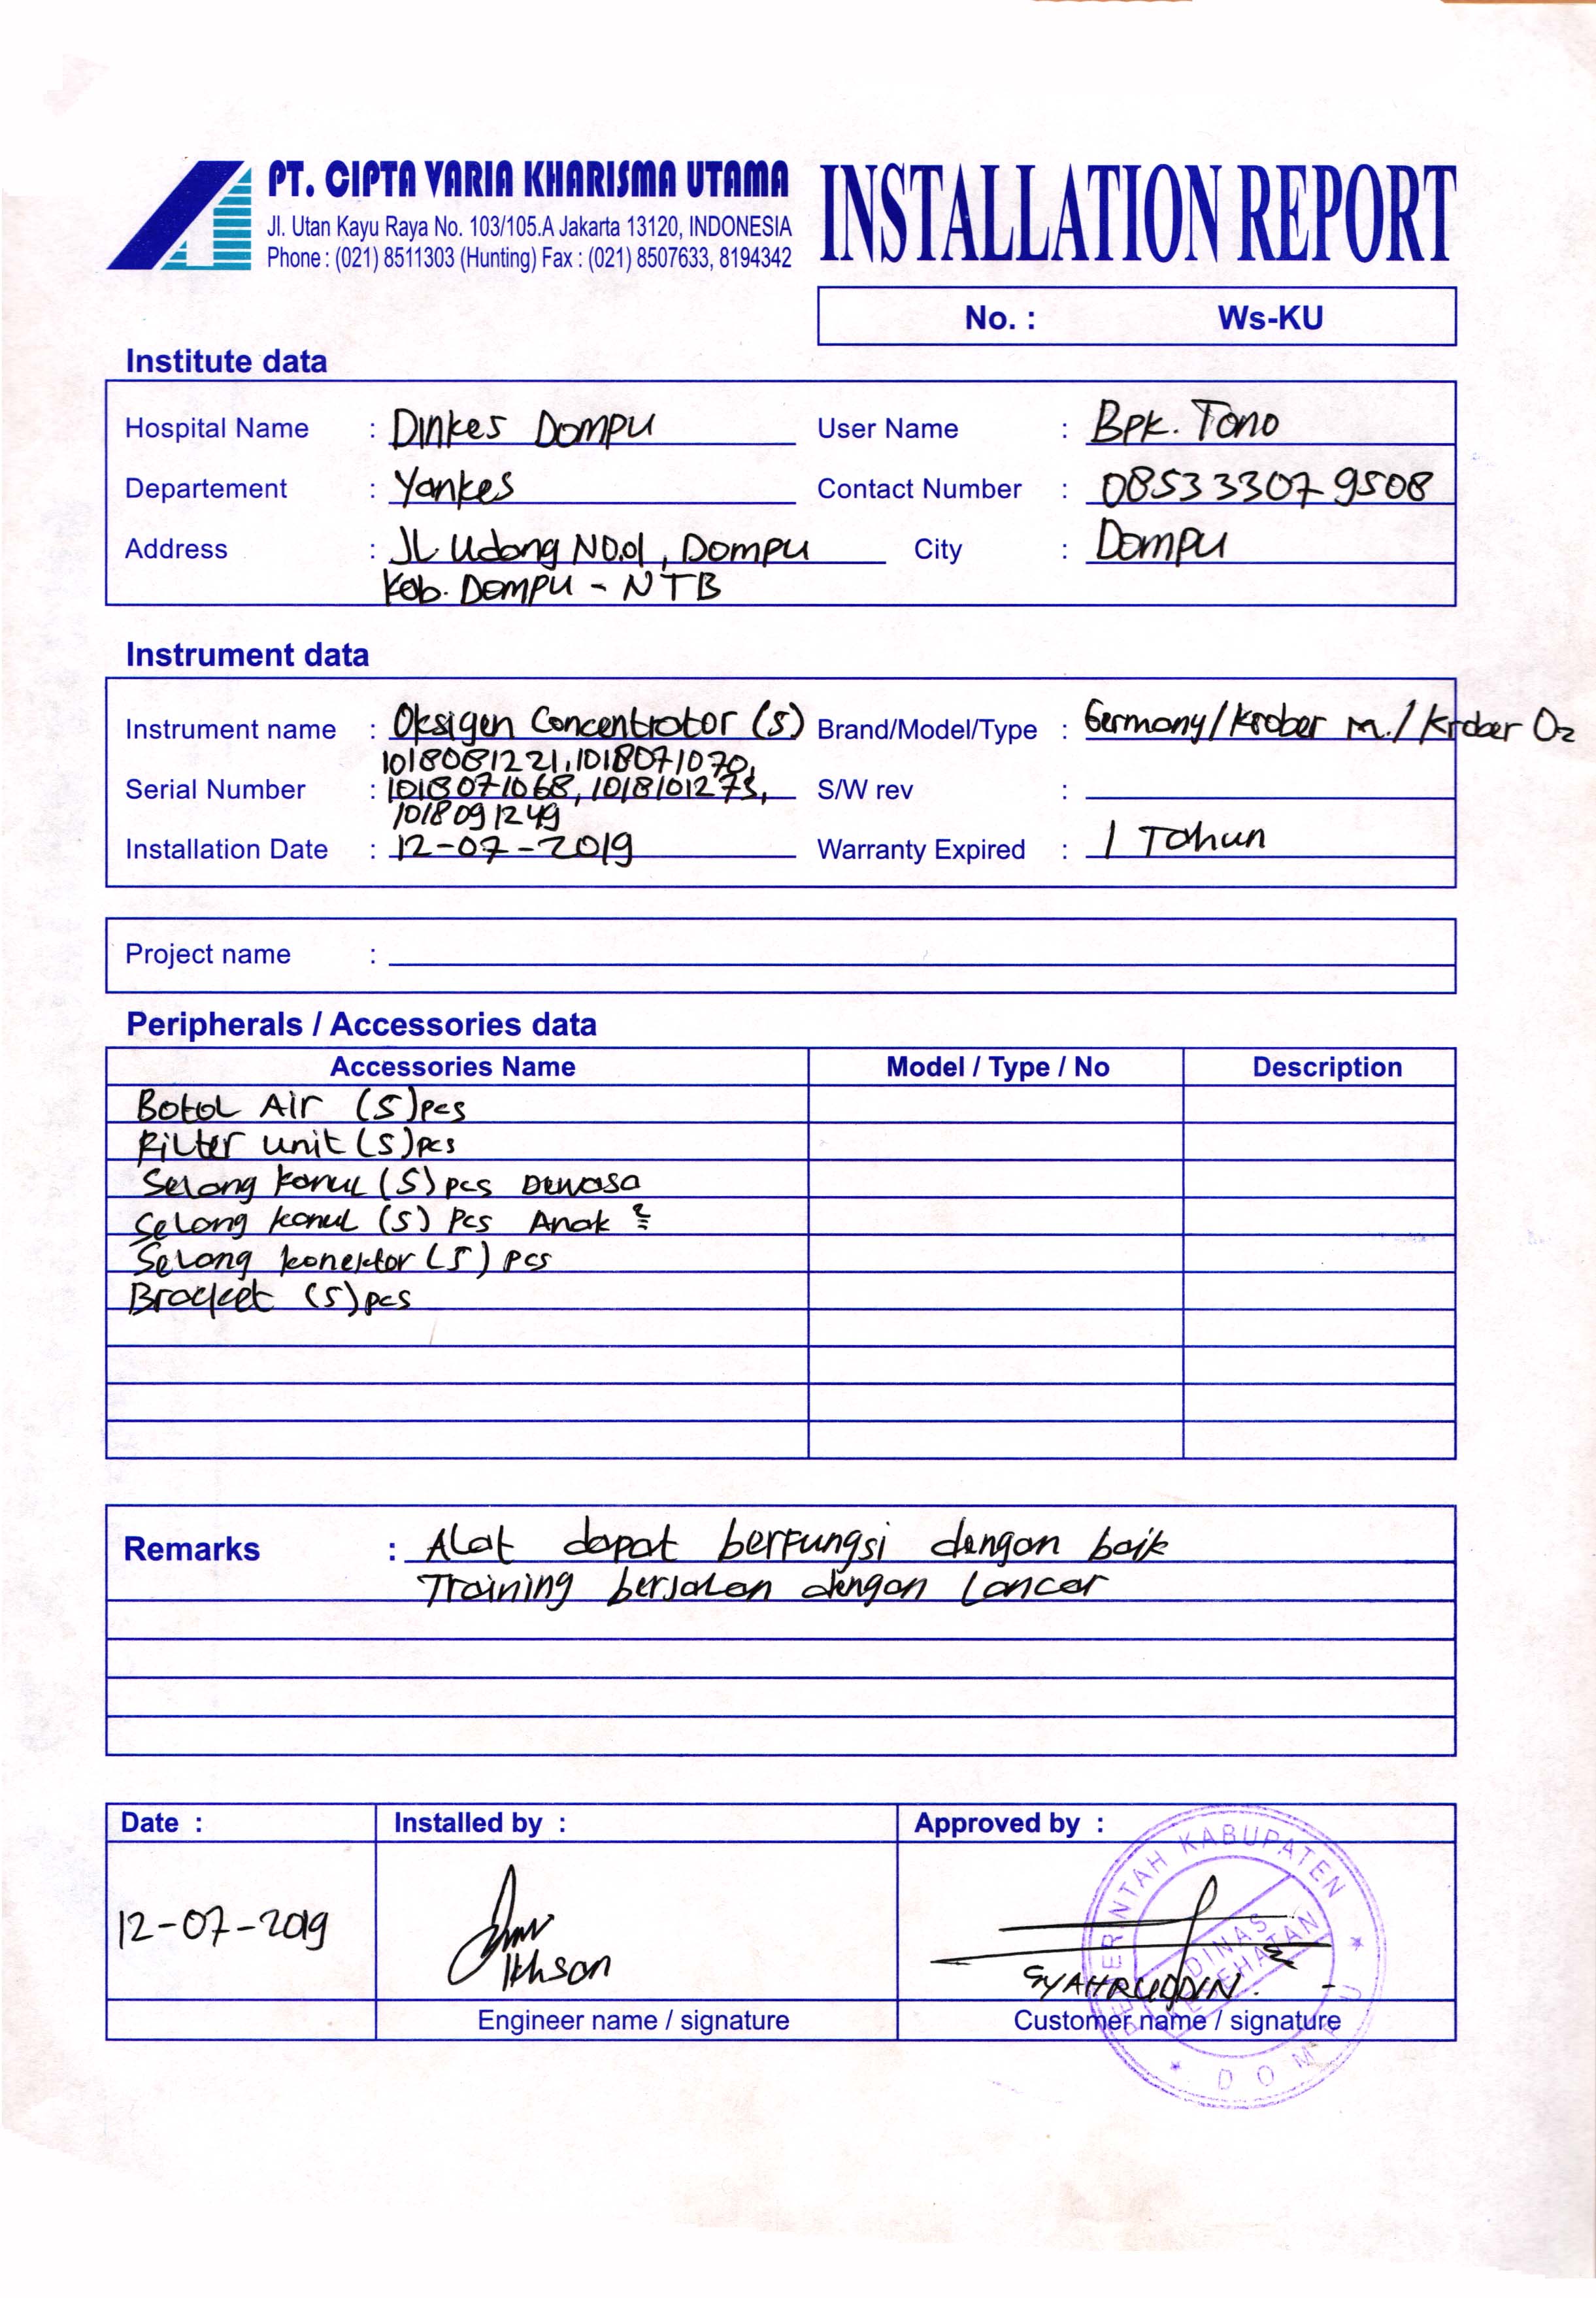 PT. CIPTA VARIA KHARISMA UTAMA
Jl. Utan Kayu Raya No. 103/105.A Jakarta 13120, INDONESIA
Phone : (021) 8511303 (Hunting) Fax : (021) 8507633, 8194342
INSTALLATION REPORT
No. : Ws-KU
Institute data
Hospital Name : Dinkes Dompu User Name : Bpk. Tono
Departement : Yankes Contact Number : 085333079508
Address : JL Udang NO.01, Dompu City : Dompu
Kab. Dompu - NTB
Instrument data
Instrument name : Oksigen Concentrator (5) Brand/Model/Type : Germany/Krober m./Krober O2
1018081221, 1018071070,
Serial Number : 1018071068, 1018101273, S/W rev :
1018091249
Installation Date : 12-07-2019 Warranty Expired : 1 Tahun
Project name :
Peripherals / Accessories data
Accessories Name Model / Type / No Description
Botol Air (5) pcs
Filter unit (5) pcs
Selang kanul (5) pcs Dewasa
Selang kanul (5) Pcs Anak 2
Selang konektor (5) pcs
Bracket (5) pcs
Remarks : Alat dapat berfungsi dengan baik
Training berjalan dengan Lancar
Date : Installed by : Approved by :
12-07-2019
Ikhsan
SYAHRUDDIN.
Engineer name / signature Customer name / signature
PEMERINTAH KABUPATEN
DINAS
KESEHATAN
DOMPU